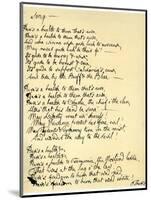 Song —
Here's a health to them that's awa,
Here's a health to them that's awa;
And wha winna wish gude luck to our cause,
May never gude luck be their fa'!
It's gude to be merry and wise,
It's gude to be honest and true,
It's gude to support Caledonia's cause,
And bide by the Buff & the Blue.
Here's a health to them that's awa,
Here's a health to them that's awa;
Here's a health to Charlie, the chief o' the clan,
Altho' that his band be sma'.
May Liberty meet wi' success!
May Prudence protect her frae evil!
May Tyrants & Tyranny tine i' the mist,
And wander the way to the devil!
Here's a health
Here's a health
Here's a health to Tammie, the Norland laddie,
That lives at the lug o' the law!
Here's freedom to
Here's freedom to them that wad write!